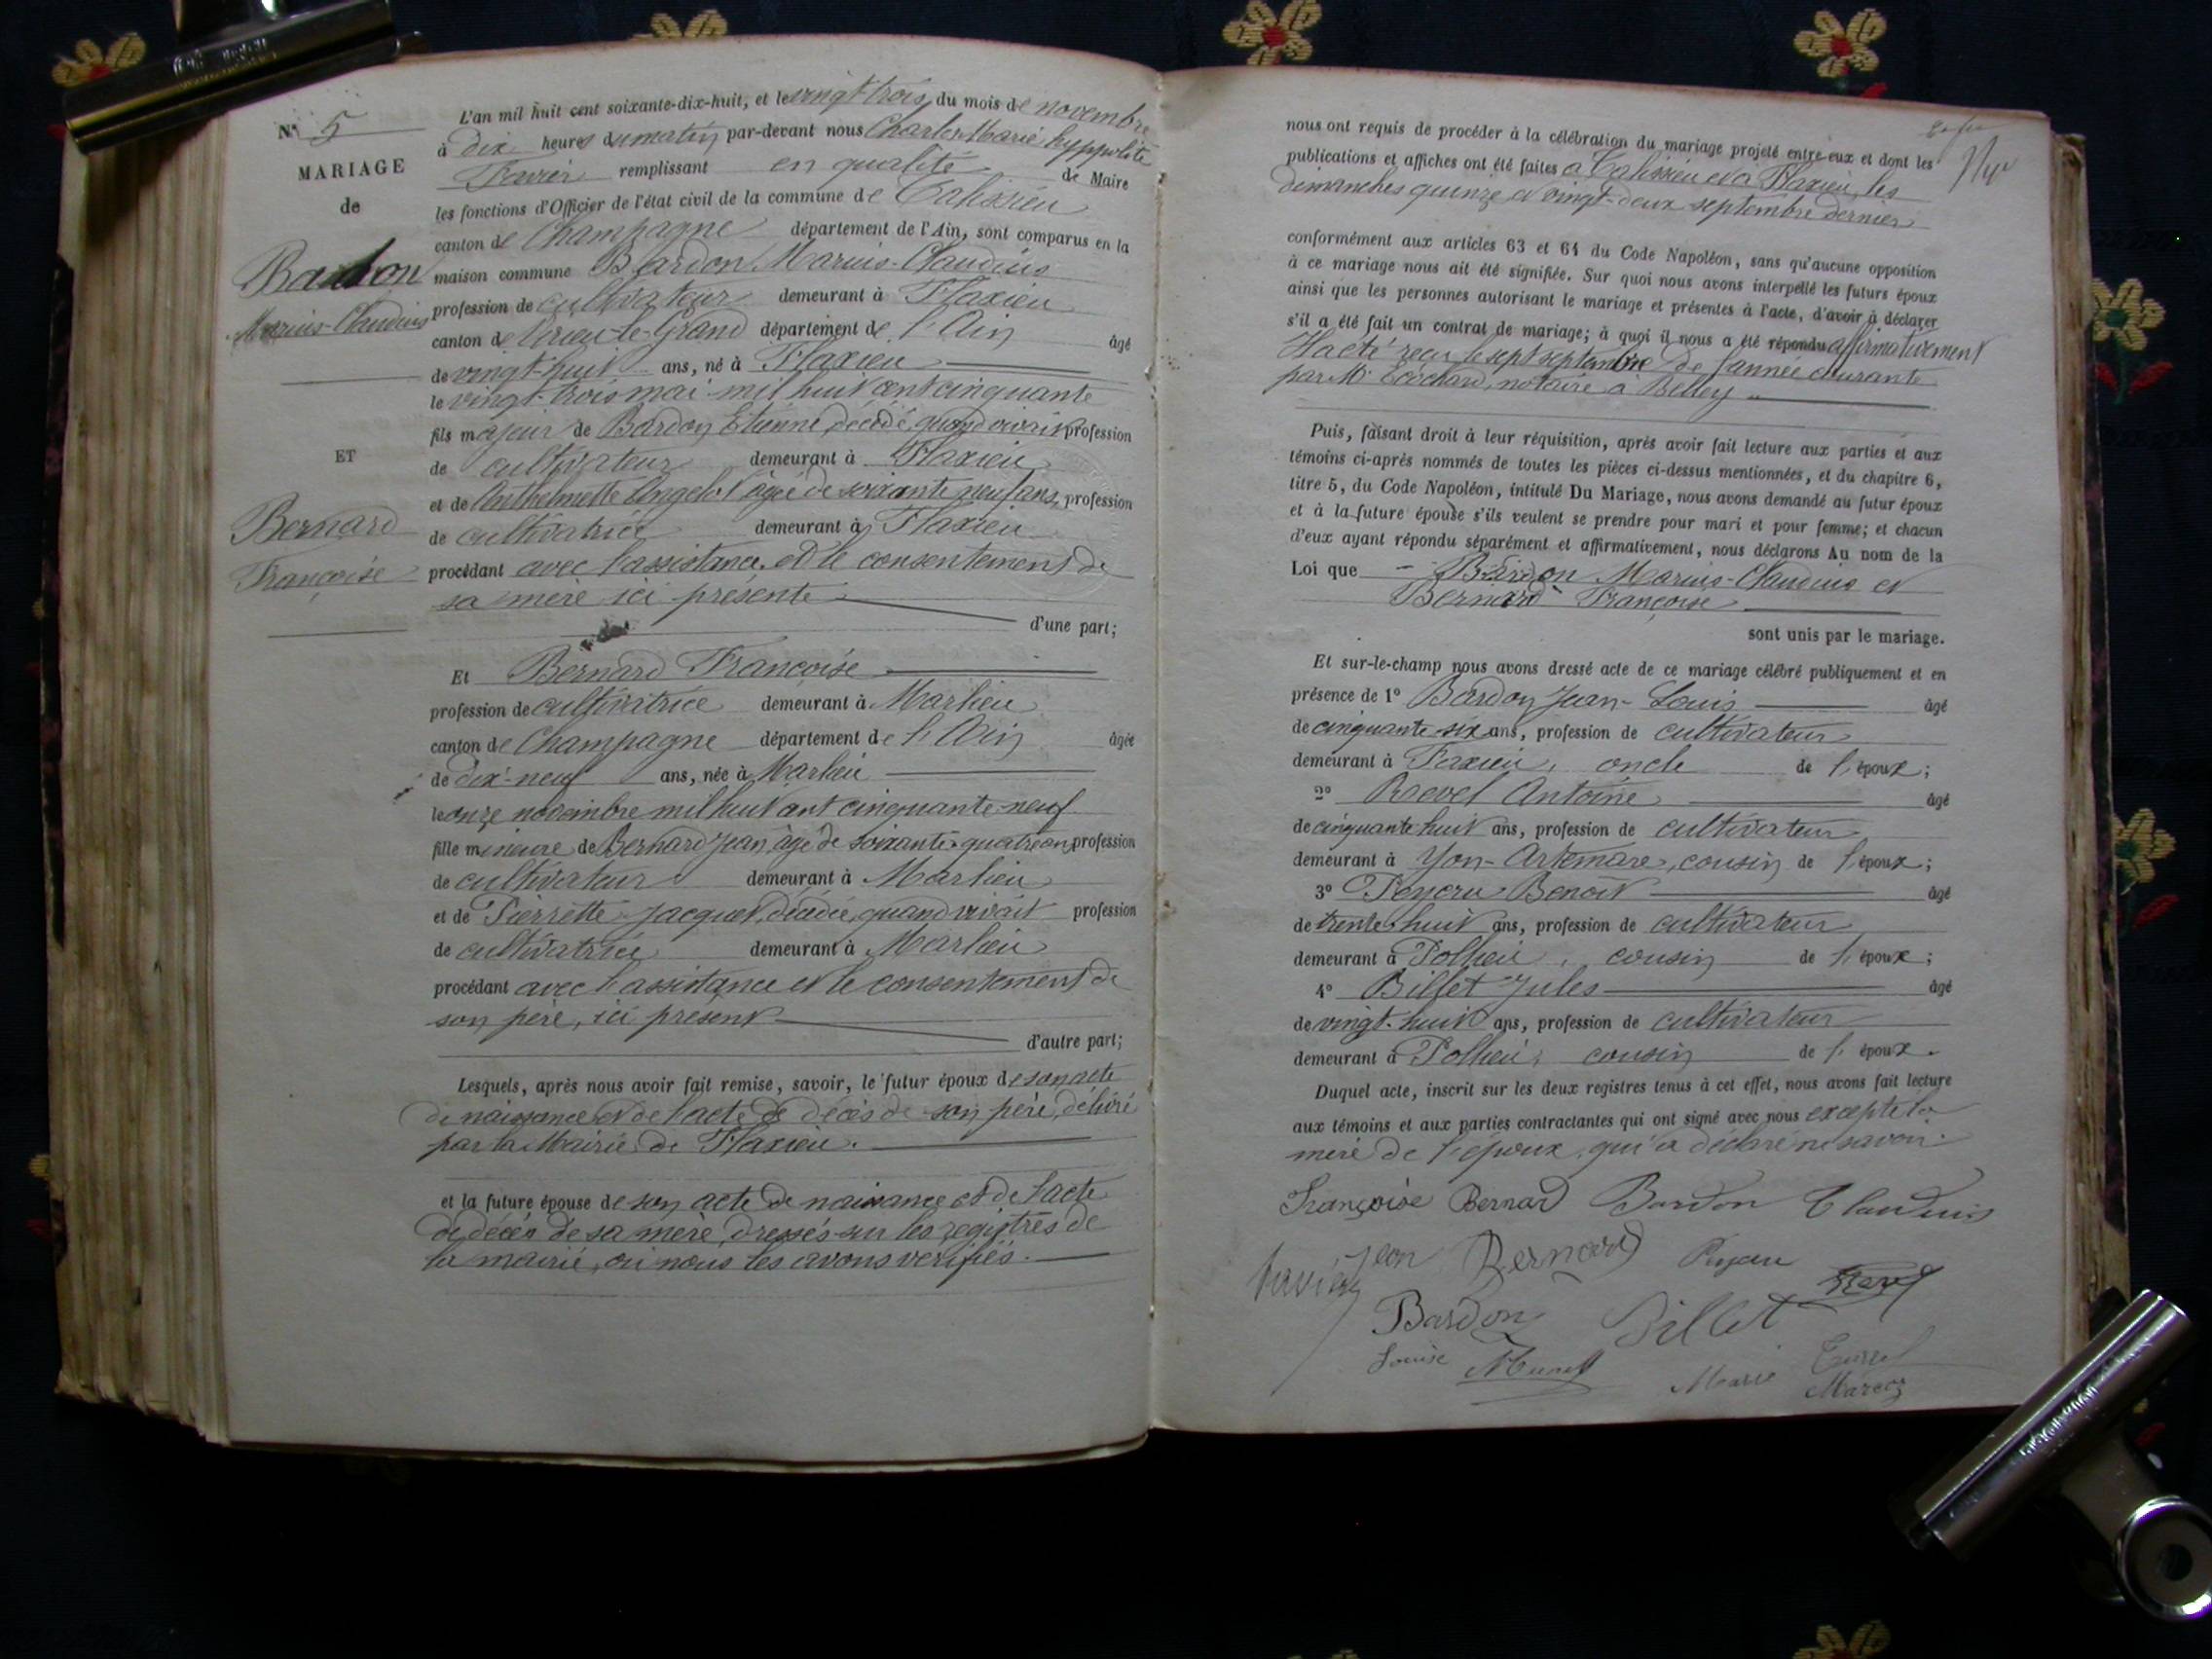 N° 5
MARIAGE
de
Bardon
Marius-Claudius
ET
Bernard
Françoise
L'an mil huit cent soixante-dix-huit, et le vingt-trois du mois de novembre
à dix heures du matin par-devant nous Charles Marie hyppolite
Favier remplissant en qualité de Maire
les fonctions d'Officier de l'état civil de la commune de Talissieu
canton de Champagne département de l'Ain, sont comparus en la
maison commune Bardon Marius-Claudius
profession de cultivateur demeurant à Flaxieu
canton de Virieu-le-Grand département de l'Ain âgé
de vingt-huit ans, né à Flaxieu
le vingt-trois mai mil huit cent cinquante
fils majeur de Bardon Etienne, décédé, quand vivait profession
de cultivateur demeurant à Flaxieu
et de Anthelmette Angelot âgée de soixante neuf ans, profession
de cultivatrice demeurant à Flaxieu
procédant avec l'assistance et le consentement de
sa mère ici présente
d'une part;
Et Bernard Françoise
profession de cultivatrice demeurant à Marlieu
canton de Champagne département de l'Ain âgée
de dix-neuf ans, née à Marlieu
le onze novembre mil huit cent cinquante-neuf
fille mineure de Bernard Jean, âgé de soixante-quatre ans, profession
de cultivateur demeurant à Marlieu
et de Pierrette Jacquet, décédée, quand vivait profession
de cultivatrice demeurant à Marlieu
procédant avec l'assistance et le consentement de
son père, ici présent
d'autre part;
Lesquels, après nous avoir fait remise, savoir, le futur époux de son acte
de naissance et de l'acte de décès de son père, délivré
par la Mairie de Flaxieu.
et la future épouse de son acte de naissance et de l'acte
de décès de sa mère, dressés sur les registres de
la mairie, où nous les avons vérifiés.
nous ont requis de procéder à la célébration du mariage projeté entre eux et dont les
publications et affiches ont été faites à Talissieu et à Flaxieu, les
dimanches quinze et vingt-deux septembre dernier
conformément aux articles 63 et 64 du Code Napoléon, sans qu'aucune opposition
à ce mariage nous ait été signifiée. Sur quoi nous avons interpellé les futurs époux
ainsi que les personnes autorisant le mariage et présentes à l'acte, d'avoir à déclarer
s'il a été fait un contrat de mariage; à quoi il nous a été répondu affirmativement
Il a été reçu le sept septembre de l'année courante
par Me Cochard, notaire à Belley
Puis, faisant droit à leur réquisition, après avoir fait lecture aux parties et aux
témoins ci-après nommés de toutes les pièces ci-dessus mentionnées, et du chapitre 6,
titre 5, du Code Napoléon, intitulé Du Mariage, nous avons demandé au futur époux
et à la future épouse s'ils veulent se prendre pour mari et pour femme; et chacun
d'eux ayant répondu séparément et affirmativement, nous déclarons Au nom de la
Loi que Bardon Marius-Claudius et
Bernard Françoise
sont unis par le mariage.
Et sur-le-champ nous avons dressé acte de ce mariage célébré publiquement et en
présence de 1° Bardon Jean-Louis âgé
de cinquante-six ans, profession de cultivateur
demeurant à Flaxieu, oncle de l'époux;
2° Revel Antoine âgé
de cinquante huit ans, profession de cultivateur
demeurant à Yon-Artemare, cousin de l'époux;
3° Benoît âgé
de trente-huit ans, profession de cultivateur
demeurant à Pollieu, cousin de l'époux;
4° Billet Jules âgé
de vingt-huit ans, profession de cultivateur
demeurant à Pollieu, cousin de l'époux.
Duquel acte, inscrit sur les deux registres tenus à cet effet, nous avons fait lecture
aux témoins et aux parties contractantes qui ont signé avec nous excepté la
mère de l'époux, qui a déclaré ne savoir.
Françoise Bernard Bardon Claudius
Jean Bernard
Favier
Bardon Billet Revel
Louise
Marie